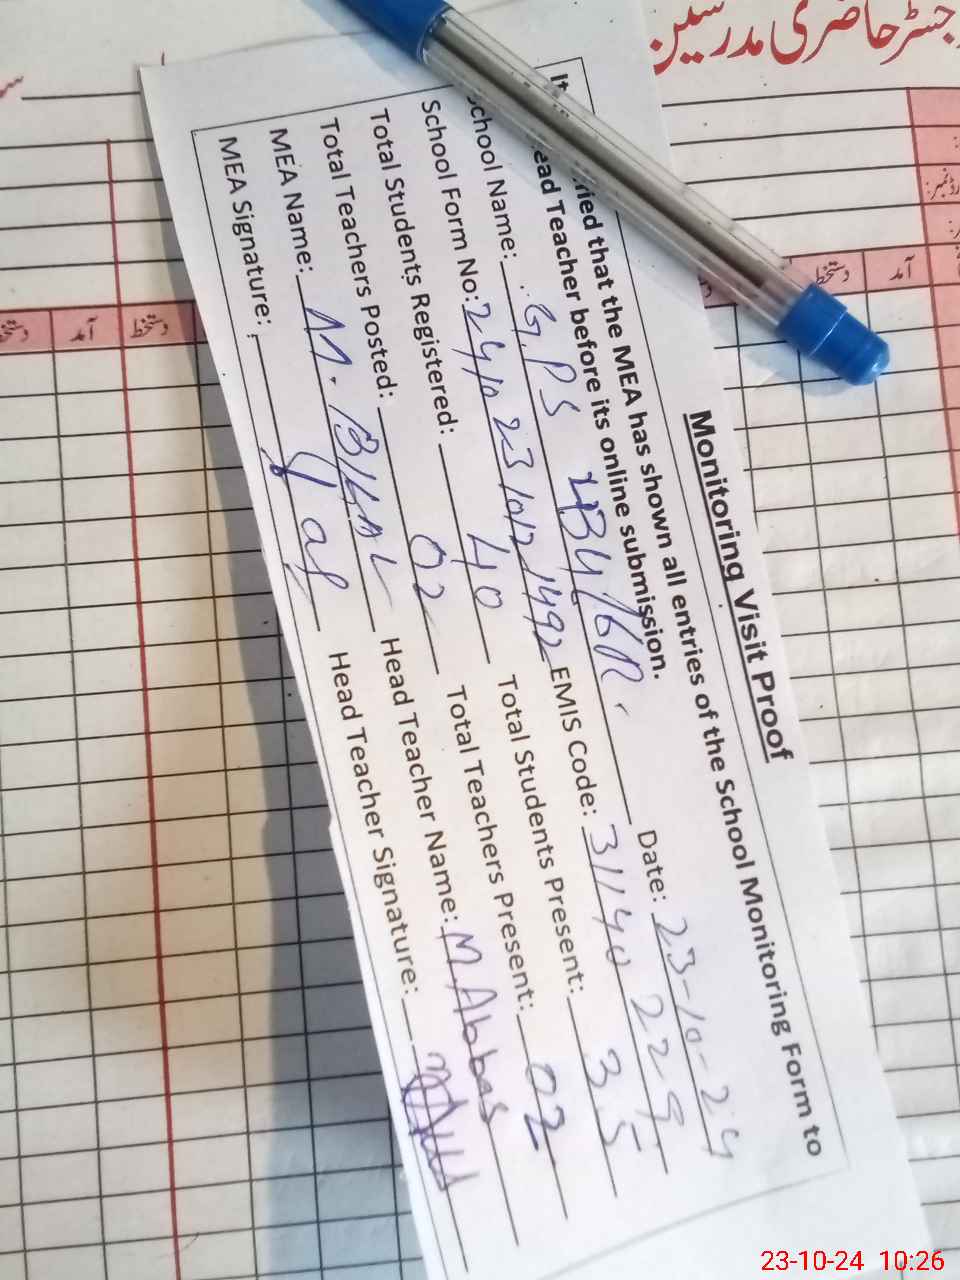 جسٹر حاضری مدرسین
آمد
دستخط
دستخط
آمد
Monitoring Visit Proof
It ified that the MEA has shown all entries of the School Monitoring Form to
ead Teacher before its online submission.
chool Name: G.PS Date: 23-10-24
School Form No: EMIS Code: 31140229
Total Students Registered: 40 Total Students Present: 35
Total Teachers Posted: 02 Total Teachers Present: 02
MEA Name: M. BILAL Head Teacher Name: M. Abbas
MEA Signature: Head Teacher Signature:
23-10-24 10:26